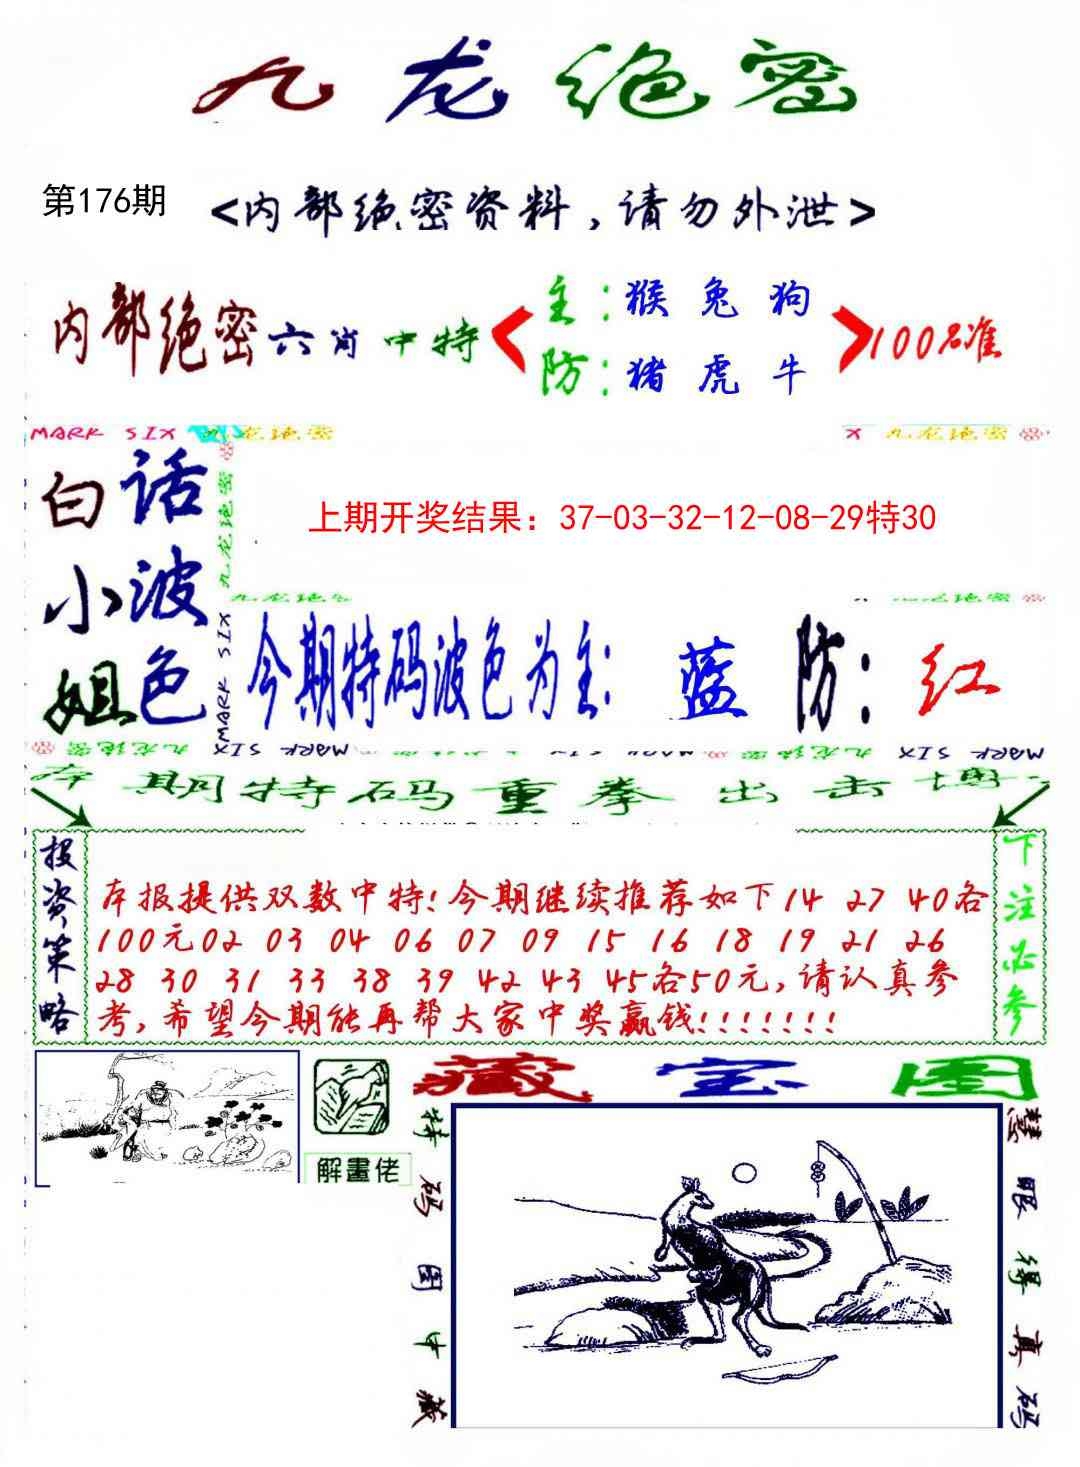 九龙绝密
第176期
<内部绝密资料,请勿外泄>
内部绝密六肖中特
主:猴 兔 狗
防:猪 虎 牛
100%准
MARK SIX 九龙绝密
X 九龙绝密
白话
小波
姐色
九龙绝密
MARK SIX
上期开奖结果：37-03-32-12-08-29特30
九龙绝密
九龙绝密
今期特码波色为主: 蓝 防: 红
九龙绝密 MARK SIX MARK SIX 九龙绝密
九龙绝密 MARK SIX
本期特码重拳出击博
投资策略
本报提供双数中特!今期继续推荐如下14 27 40各
100元02 03 04 06 07 09 15 16 18 19 21 26
28 30 31 33 38 39 42 43 45各50元,请认真参
考,希望今期能再帮大家中奖赢钱!!!!!!!
下注必参
解畫佬
藏宝图
特码图中藏
慧眼得真码